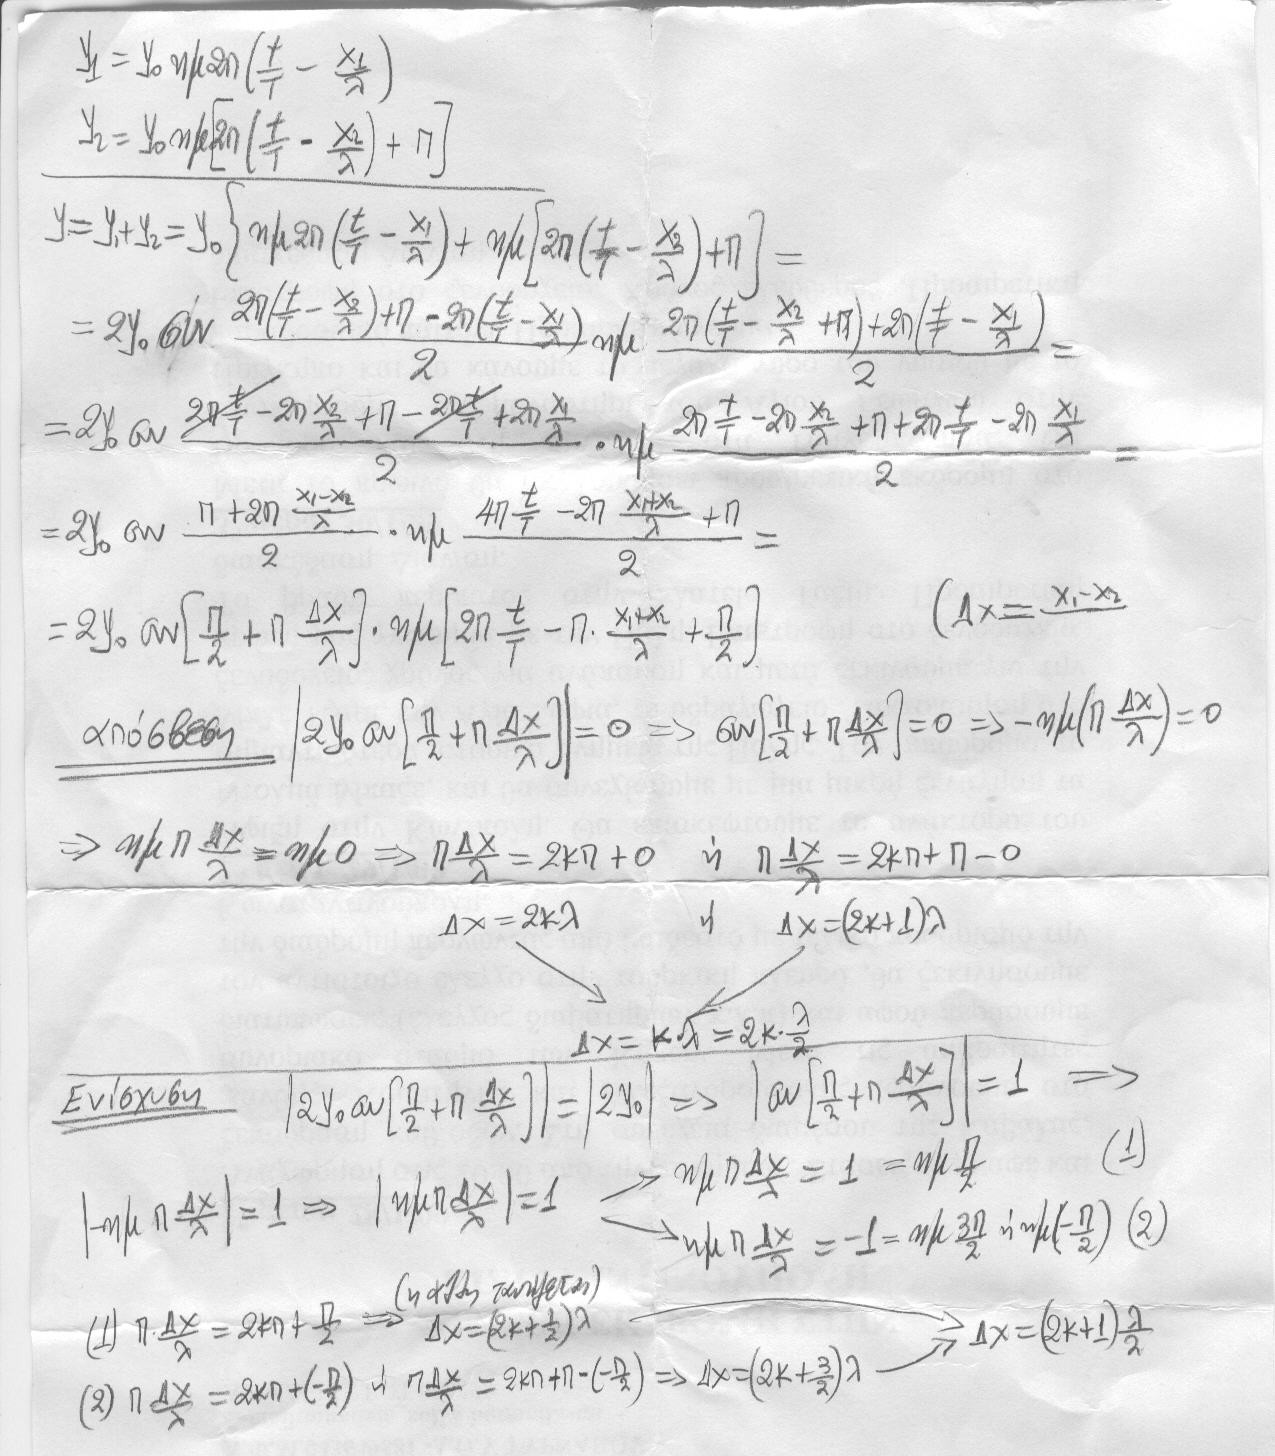 y₁ = y₀ ημ2π(t/T − x₁/λ)
y₂ = y₀ ημ[2π(t/T − x₂/λ) + π]
y = y₁ + y₂ = y₀ {ημ2π(t/T − x₁/λ) + ημ[2π(t/T − x₂/λ) + π] =
= 2y₀ συν (2π(t/T − x₂/λ) + π − 2π(t/T − x₁/λ))/2 ημ (2π(t/T − x₂/λ + π) + 2π(t/T − x₁/λ))/2 =
= 2y₀ συν (2π t/T − 2π x₂/λ + π − 2π t/T + 2π x₁/λ)/2 · ημ (2π t/T − 2π x₂/λ + π + 2π t/T − 2π x₁/λ)/2 =
= 2y₀ συν (π + 2π (x₁−x₂)/λ)/2 · ημ (4π t/T − 2π (x₁+x₂)/λ + π)/2 =
= 2y₀ συν[π/2 + π Δx/λ] · ημ[2π t/T − π · (x₁+x₂)/λ + π/2] (Δx = x₁−x₂
απόσβεση |2y₀ συν[π/2 + π Δx/λ]| = 0 => συν[π/2 + π Δx/λ] = 0 => −ημ(π Δx/λ) = 0
=> ημ π Δx/λ = ημ0 => π Δx/λ = 2κπ + 0 ή π Δx/λ = 2κπ + π − 0
Δx = 2κλ ή Δx = (2κ+1)λ
Δx = κ·λ = 2κ · λ/2
Ενίσχυση |2y₀ συν[π/2 + π Δx/λ]| = |2y₀| => |συν[π/2 + π Δx/λ]| = 1 =>
|−ημ π Δx/λ| = 1 => |ημ π Δx/λ| = 1 → ημ π Δx/λ = 1 = ημ π/2 (1)
→ ημ π Δx/λ = −1 = ημ 3π/2 ή ημ(−π/2) (2)
(η άλλη ταυτίζεται)
(1) π · Δx/λ = 2κπ + π/2 => Δx = (2κ + 1/2)λ → Δx = (2κ+1) λ/2
(2) π Δx/λ = 2κπ + (−π/2) ή π Δx/λ = 2κπ + π − (−π/2) => Δx = (2κ + 3/2)λ →